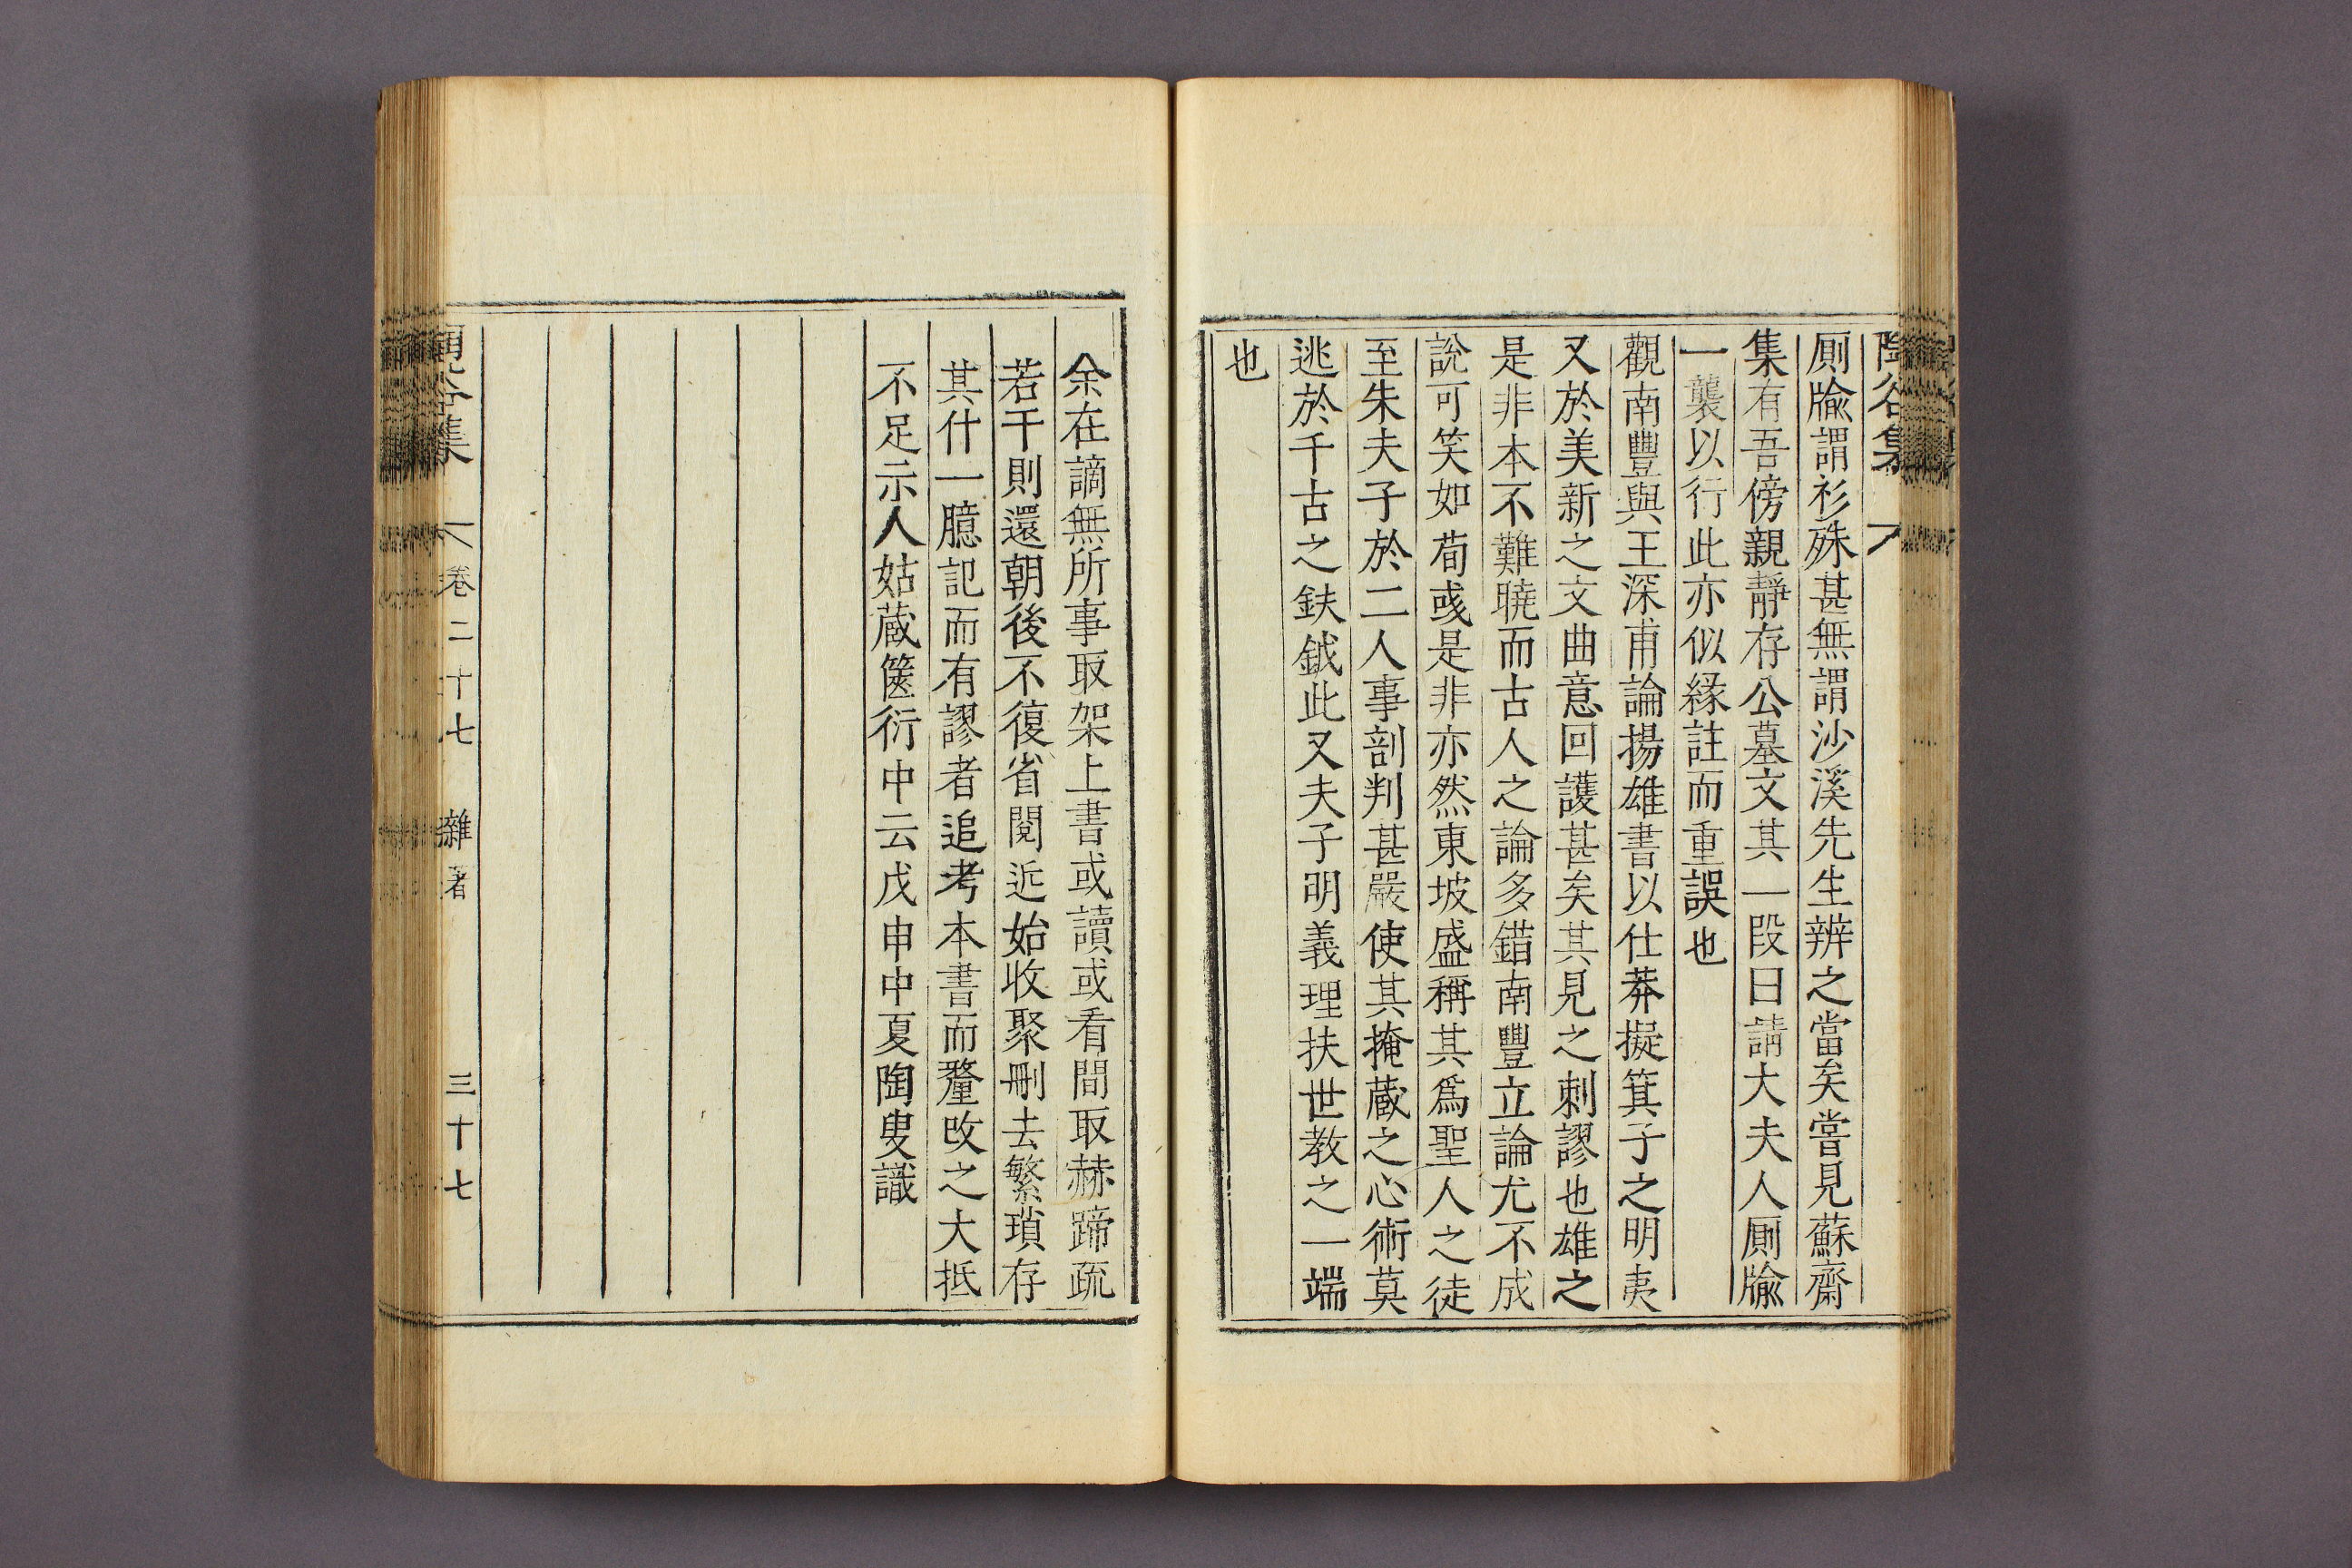 陶谷集
厠牏謂衫殊甚無謂沙溪先生辨之當矣嘗見蘇齋
集有吾傍親靜存公墓文其一段曰請大夫人厠牏
一襲以行此亦似緣註而重誤也
觀南豐與王深甫論揚雄書以仕莽擬箕子之明夷
又於美新之文曲意回護甚矣其見之刺謬也雄之
是非本不難曉而古人之論多錯南豐立論尤不成
說可笑如荀彧是非亦然東坡盛稱其爲聖人之徒
至朱夫子於二人事剖判甚嚴使其掩蔵之心術莫
逃於千古之鈇鉞此又夫子明義理扶世教之一端
也
余在謫無所事取架上書或讀或看間取赫蹏疏
若干則還朝後不復省閱近始收聚刪去繁瑣存
其什一臆記而有謬者追考本書而釐改之大抵
不足示人姑蔵篋衍中云戊申中夏陶叟識
陶谷集 卷二十七 雜著 三十七